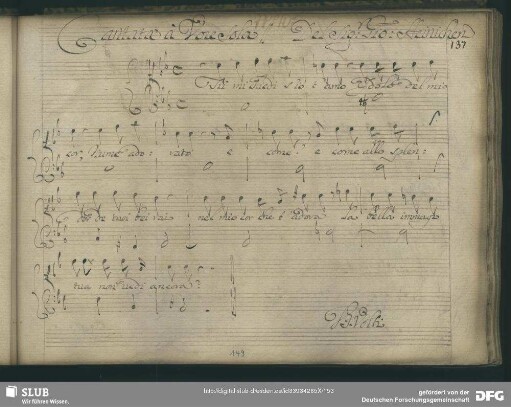 Cantata à Voce Sola. Del Sig. Gio: Heinichen
137
Tu mi chiedi s'io t'amo Idolo del mio
cor, Nume adorato e come e come allo splen:
dor de tuoi bei rai nel mio cor che t'adora la bella imago
tua non vedi ancora?
V. S. Volti
149
SLUB
Wir führen Wissen.
http://digital.slub-dresden.de/id339342859/153
gefördert von der
Deutschen Forschungsgemeinschaft
DFG